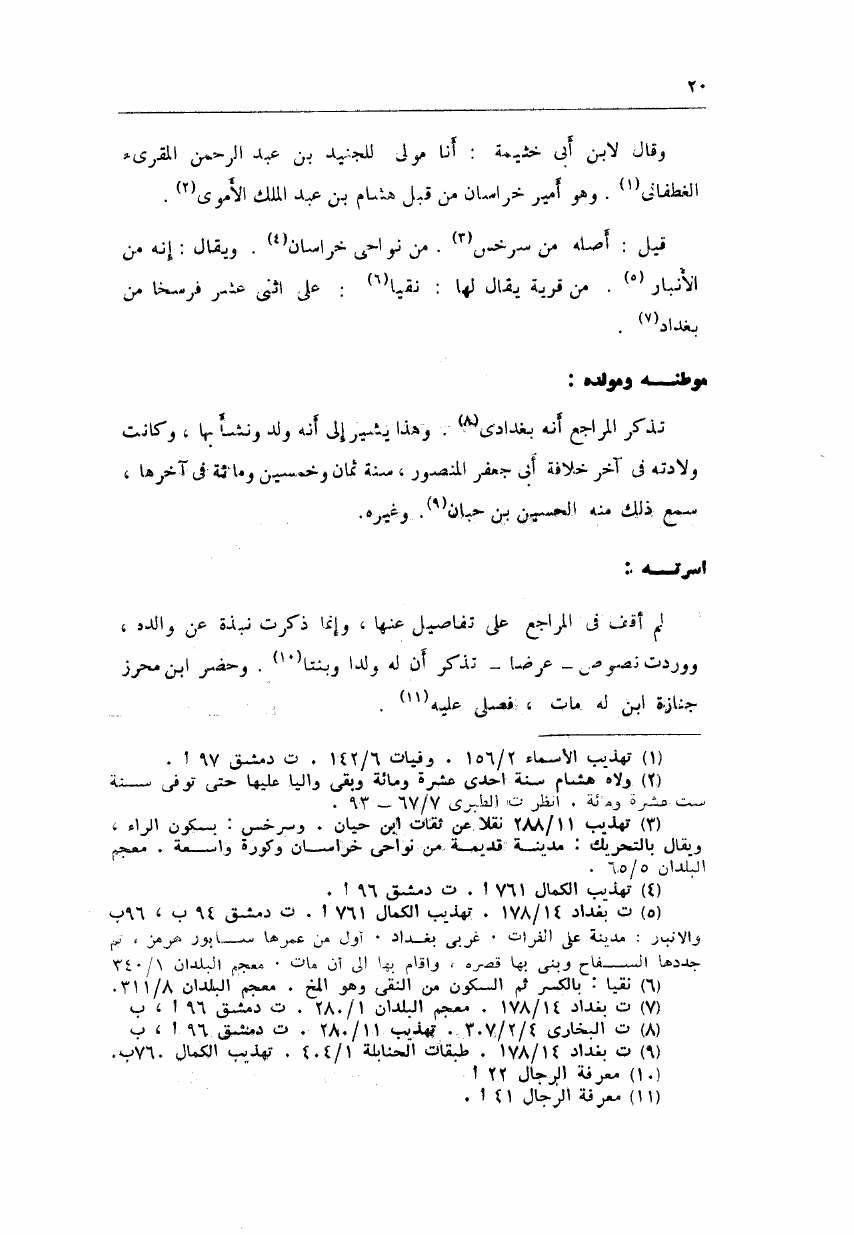 ٢٠
وقال لابن أبى خثيمة : أنا مولى للجنيد بن عبد الرحمن المقرىء
الغطفانى(١) . وهو أمير خراسان من قبل هشام بن عبد الملك الأموى(٢) .
قيل : أصله من سرخس(٣) . من نواحى خراسان(٤) . ويقال : إنه من
الأنبار(٥) . من قرية يقال لها : نقيا(٦) : على اثنى عشر فرسخا من
بغداد(٧) .
موطنـــه ومولده :
تذكر المراجع أنه بغدادى(٨) . وهذا يشير إلى أنه ولد ونشأ بها ، وكانت
ولادته فى آخر خلافة أبى جعفر المنصور ، سنة ثمان وخمسين ومائة فى آخرها ،
سمع ذلك منه الحسين بن حبان(٩). وغيره.
اسرتـــه :
لم أقف فى المراجع على تفاصيل عنها ، وإنما ذكرت نبذة عن والده ،
ووردت نصوص – عرضا – تذكر أن له ولدا وبنتا(١٠) . وحضر ابن محرز
جنازة ابن له مات ، فصلى عليه(١١) .
(١) تهذيب الأسماء ١٥٦/٢ . وفيات ١٤٢/٦ . ت دمشق ٩٧ أ .
(٢) ولاه هشام سنة احدى عشرة ومائة وبقى واليا عليها حتى توفى ســنة
ست عشرة ومائة . انظر ت الطبرى ٦٧/٧ – ٩٣ .
(٣) تهذيب ٢٨٨/١١ نقلا عن ثقات ابن حبان . وسرخس : بسكون الراء ،
ويقال بالتحريك : مدينــة قديمــة من نواحى خراسان وكورة واســعة . معجم
البلدان ٦٥/٥ .
(٤) تهذيب الكمال ٧٦١ أ . ت دمشق ٩٦ أ .
(٥) ت بغداد ١٧٨/١٤ . تهذيب الكمال ٧٦١ أ . ت دمشق ٩٤ ب ، ٩٦ب
والانبار : مدينة على الفرات . غربى بغــداد . أول من عمرها ســابور هرمز ، ثم
جددها الســفاح وبنى بها قصره ، واقام بها إلى أن مات . معجم البلدان ٣٤٠/١
(٦) نقيا : بالكسر ثم السكون من النقى وهو المخ . معجم البلدان ٣١١/٨.
(٧) ت بغداد ١٧٨/١٤ . معجم البلدان ٢٨٠/١ . ت دمشق ٩٦ أ ، ب
(٨) ت البخارى ٣٠٧/٢/٤ . تهذيب ٢٨٠/١١ . ت دمشق ٩٦ أ ، ب
(٩) ت بغداد ١٧٨/١٤ . طبقات الحنابلة ٤٠٤/١ . تهذيب الكمال ٧٦٠ب.
(١٠) معرفة الرجال ٢٢ أ
(١١) معرفة الرجال ٤١ أ .